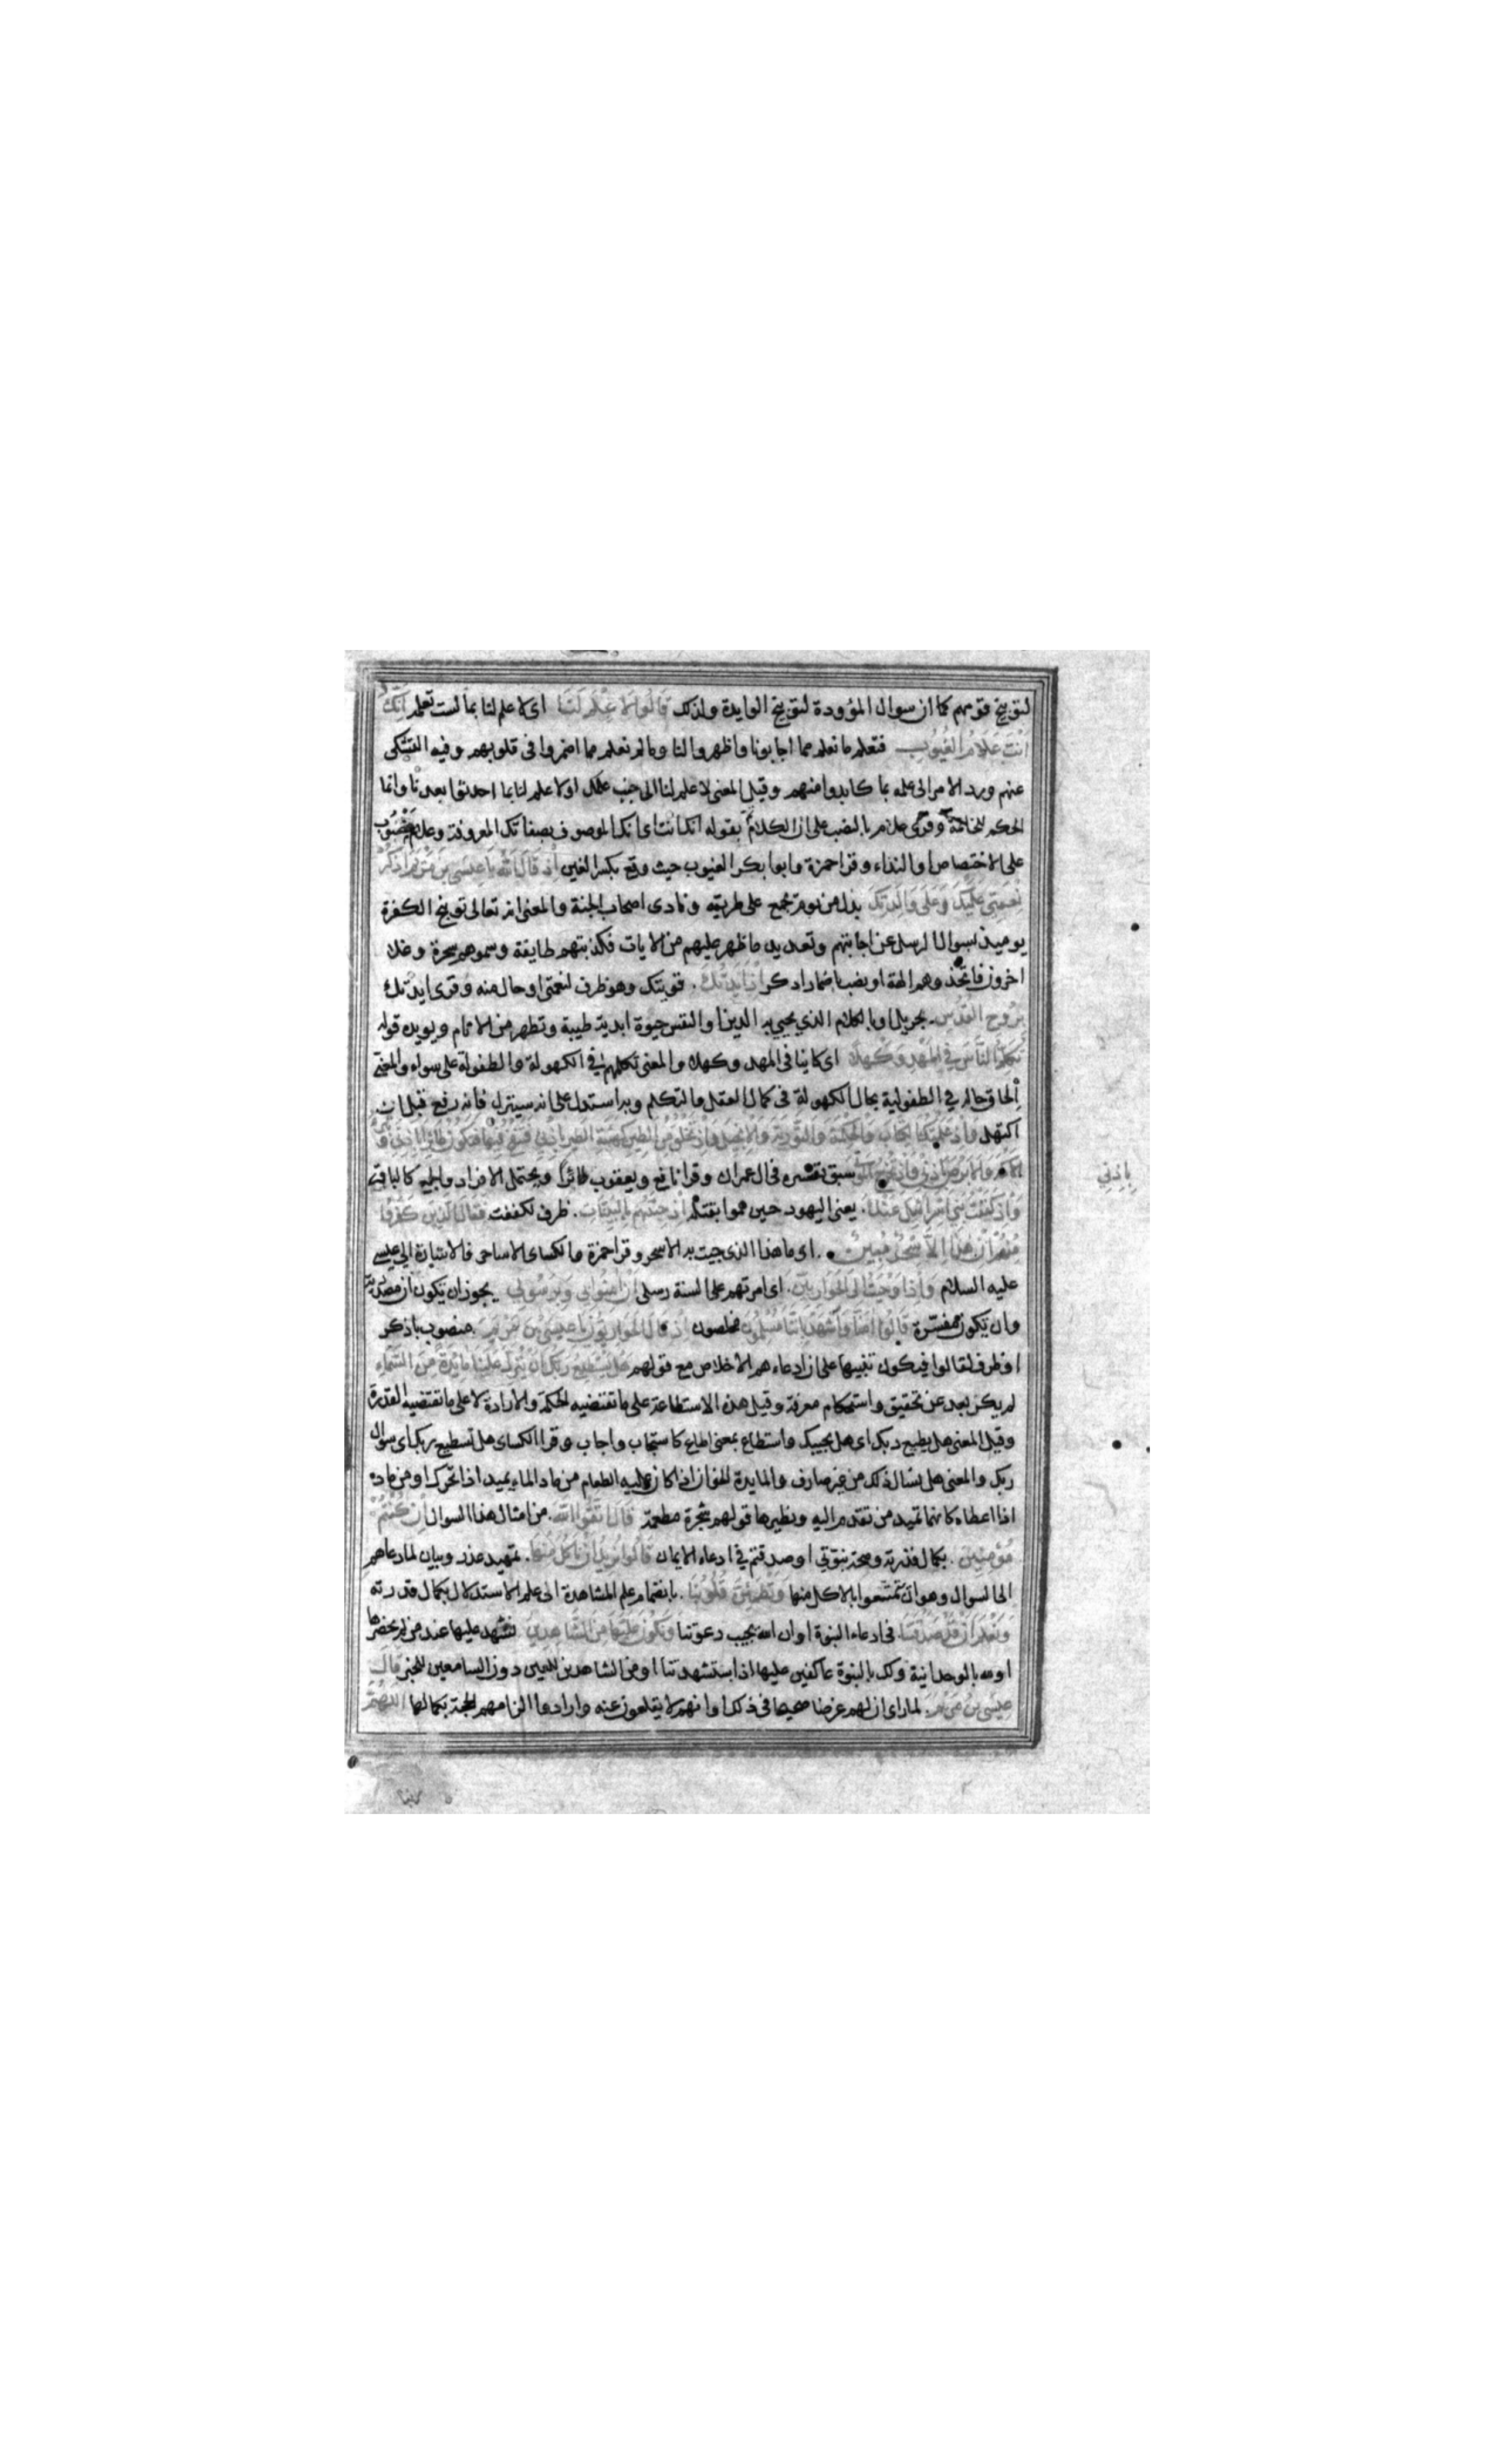 لتوبيخ قومهم كما ان سوال المؤودة لتوبيخ الوايدة ولذلك قَالُوا لَا عِلْمَ لَنَا اى لا علم لنا بما لست تعلم اِنَّكَ
اَنْتَ عَلَّامُ الغُيُوبِ فتعلم ما نعلم مما اجابونا واظهروا لنا وما لم نعلم مما اضمروا فى قلوبهم وفيه التشكى
عنهم ورد الامر الى علمه بما كابدوا منهم وقيل المعنى لا علم لنا الى جنب علمك او لا علم لنا بما احدثوا بعدنا وانما
الحكم للخاتمة وقرى علام بالنصب على ان الكلام تم بقوله انك انت اى انك الموصوف بصفاتك المعروفة وعلام منصوب
على الاختصاص او النداء وقرا حمزة وابو بكر الغيوب حيث وقع بكسر الغين اِذْ قَالَ اللهُ يَا عِيسَى بن مَرْيَمَ اذكُرْ
نِعْمَتِي عَلَيْكَ وَعَلَى وَالِدَتِكَ بدل من يوم يجمع على طريقة ونادى اصحاب الجنة والمعنى انه تعالى توبيخ الكفرة
يوميذ بسوال الرسل عن اجابتهم وتعديد ما ظهر عليهم من الايات فكذبتهم طايفة وسموهم سحرة وغلا
اخرون فاتخذوهم الهة او نصب باضمار اذكر اِذْ اَيَّدْتُكَ. قويتك وهو ظرف لنعمتى او حال منه وقرى ايدتك
بِرُوحِ القُدُسِ. بجبريل او بالكلام الذي يحيي به الدين او النفس حيوة ابدية طيبة وتطهر من الاثام ويويده قوله
تُكَلِّمُ النَّاسَ فِي المَهْدِ وَكَهْلًا اى كاينا فى المهد وكهلا والمعنى تكلمهم في الكهولة والطفولة على سواء والمعنى
اِلحاق حاله في الطفولية بحال الكهولة فى كمال العقل والتكلم وبه استدل على انه سينزل فانه رفع قبل ان
اكتهل وَاِذْ عَلَّمْتُكَ الكِتَابَ وَالحِكْمَةَ وَالتَّوْرَيةَ وَالاِنجِيلَ وَاِذْ تَخْلُقُ مِنَ الطِّينِ كَهَيْئَةِ الطَّيرِ بِاِذْنِي فَتَنْفُخُ فِيهَا فَتَكُونُ طَائِرًا بِاِذْنِي وَتُبْرِئُ
الاَكْمَهَ وَالاَبْرَصَ بِاِذْنِي وَاِذْ تُخْرِجُ المَوْتَى سبق تفسيره فى ال عمران وقرا نافع ويعقوب طائرا ويحتمل الافراد والجمع كالباقر
بِاِذْنِي
وَاِذْ كَفَفْتُ بَنِي اِسْرَائِيلَ عَنْكَ. يعنى اليهود حين هموا بقتله اِذْ جِئْتَهُم بِالبَيِّنَاتِ. ظرف لكففت فَقَالَ الَّذِينَ كَفَرُوا
مِنْهُمْ اِنْ هٰذَا اِلَّا سِحْرٌ مُبِينٌ. اى ما هذا الذى جيت به الا سحر وقرا حمزة والكساى الا ساحر فالاشارة الى عيسى
عليه السلام وَاِذْ اَوْحَيْتُ اِلَى الحَوَارِيِّنَ. اى امرتهم على السنة رسلى اَنْ اٰمِنُوا بِي وَبِرَسُولِي يجوز ان يكون ان مصدرية
وان يكون مفسّرة قَالُوا اٰمَنَّا وَاشْهَدْ بِاَنَّنَا مُسْلِمُونَ مخلصون اِذْ قَالَ الحَوَارِيُّونَ يَا عِيسَى بن مَرْيَمَ. منصوب باذكر
او ظرف لقالوا فيكون تنبيها على ان ادعاءهم الاخلاص مع قولهم هَلْ يَسْتَطِيعُ رَبُّكَ اَن يُنَزِّلَ عَلَيْنَا مَايِدَةً مِنَ السَّمَاءِ
لم يكن بعد عن تحقيق واستحكام معرفة وقيل هذه الاستطاعة على ما تقتضيه الحكمة والارادة لا على ما تقتضيه القدرة
وقيل المعنى هل يطيع ربك اى هل يجيبك واستطاع بمعنى اطاع كاستجاب واجاب وقرا الكساى هل تستطيع ربك اى سوال
ربك والمعنى هل تسال ذلك من غير صارف والمايدة الخوان اذا كان عليه الطعام من ماد الماء يميد اذا تحرك او من ماده
اذا اعطاه كانها تميد من تقدم اليه ونظيرها قولهم شجرة مطعمة قَالَ اتَّقُوا اللهَ. من امثال هذا السوال اِن كُنْتُمْ
مُؤْمِنِينَ. بكمال قدرته وصحة نبوّتي او صدقتم في ادعاء الايمان قَالُوا نُرِيدُ اَنْ نَاْكُلَ مِنْهَا. تمهيد عذر وبيان لما دعاهم
الى السوال وهو ان يتمتعوا بالاكل منها وَتَطْمَئِنَّ قُلُوبُنَا. بانضمام علم المشاهدة الى علم الاستدلال بكمال قدرته
وَنَعْلَمَ اَنْ قَدْ صَدَقْتَنَا. فى ادعاء النبوة او ان الله يجيب دعوتنا وَنَكُونَ عَلَيْهَا مِنَ الشَّاهِدِينَ نشهد عليها عند من لم يحضرها
او لله بالوحدانية ولك بالنبوة عاكفين عليها اذا استشهدتنا او من الشاهدين للعين دون السامعين للخبر قَالَ
عِيسَى بن مَرْيَمَ. لما راى ان لهم غرضا صحيحا فى ذلك او انهم لا يقلعون عنه وارادوا الزامهم الحجة بكمالها اللّٰهُمَّ
ربنا